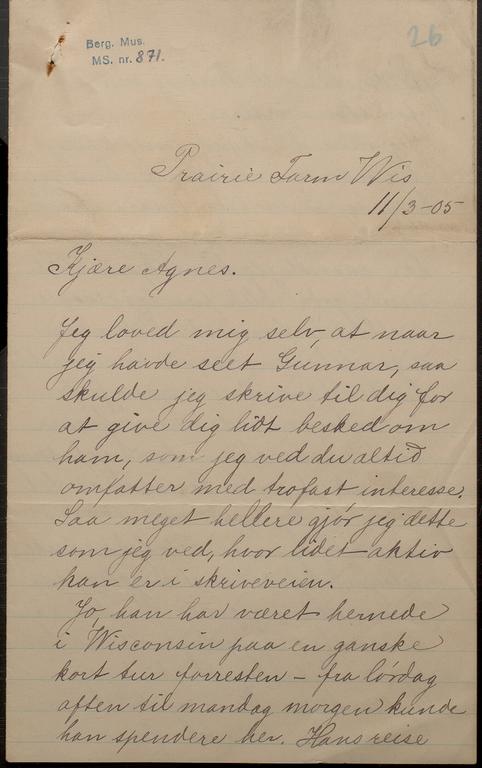 Berg. Mus.
MS. nr. 871.
26
Prairie Farm Wis
11/3-05
Kjære Agnes.
Jeg loved mig selv, at naar
jeg havde seet Gunnar, saa
skulde jeg skrive til dig for
at give dig lidt besked om
ham, som jeg ved du altid
omfatter med trofast interesse.
Saa meget hellere gjør jeg dette
som jeg ved, hvor lidet aktiv
han er i skriveveien.
Jo, han har været hernede
i Wisconsin paa en ganske
kort tur forresten – fra lørdag
aften til mandag morgen kunde
han spendere her. Hans reise